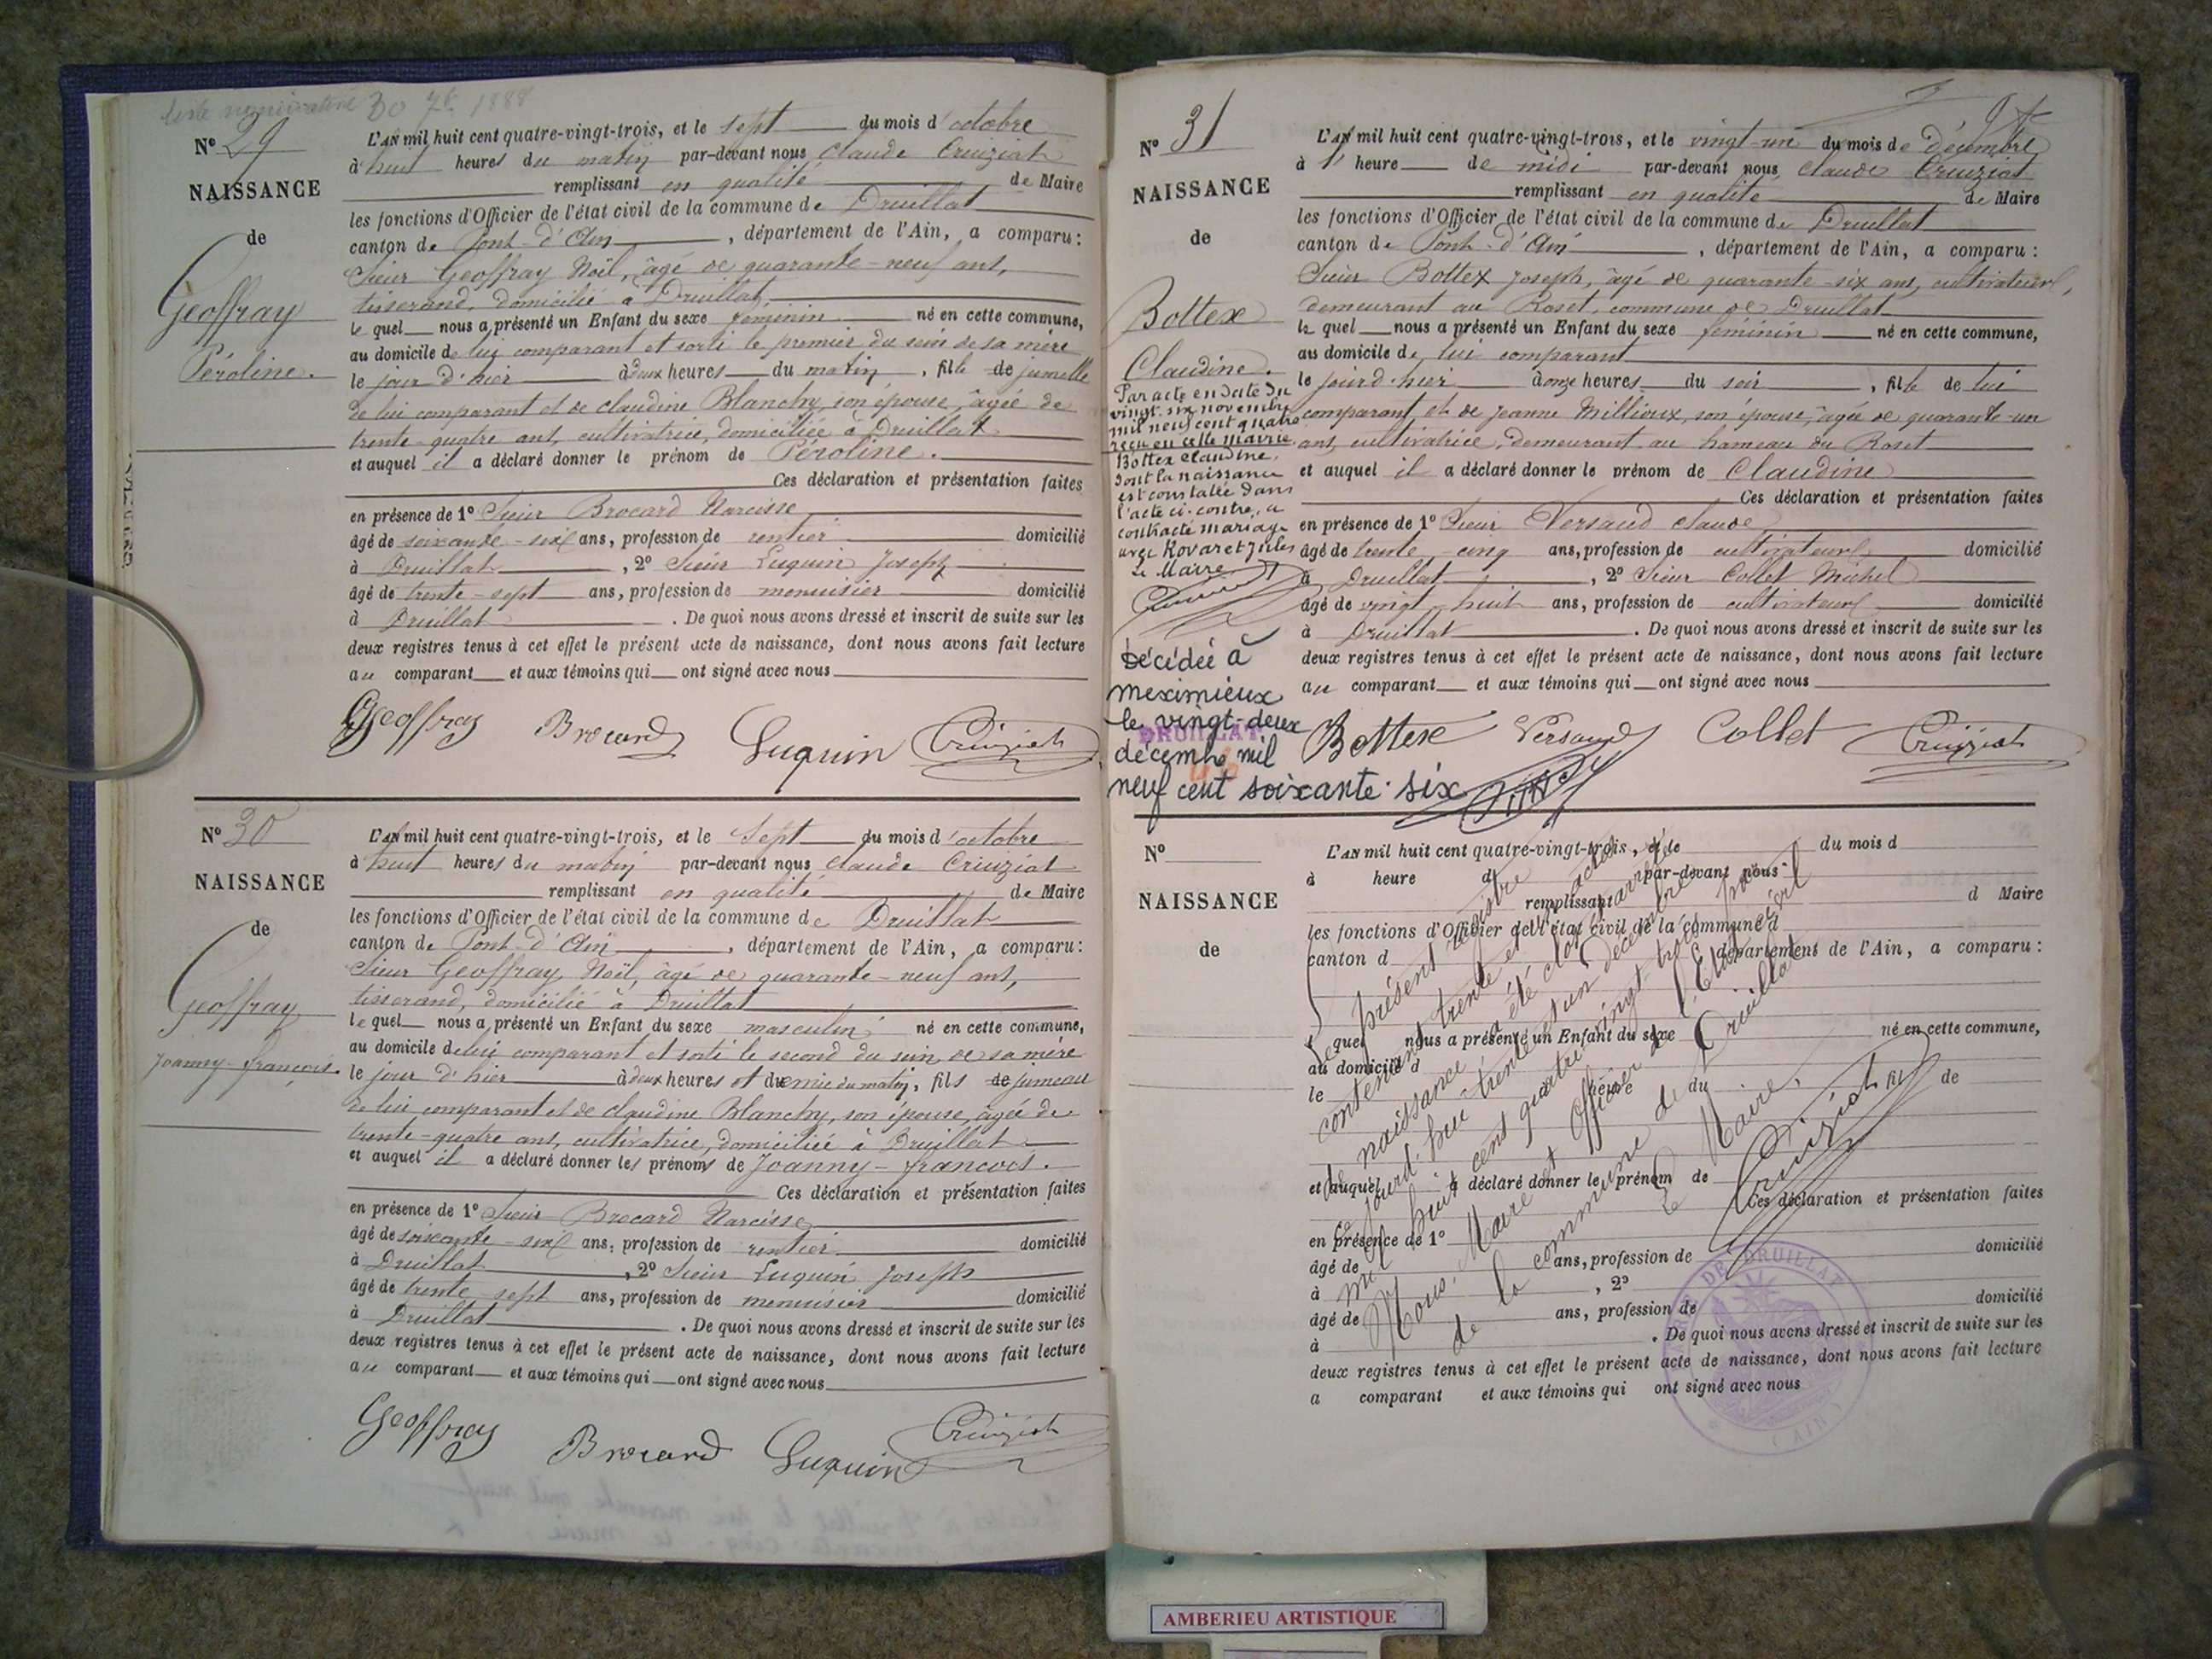 liste nominative 30 7bre 1888
N° 29
NAISSANCE
de
Geoffray
Péroline.
L'AN mil huit cent quatre-vingt-trois, et le sept du mois d'octobre
à huit heures du matin par-devant nous Claude Cruiziat
remplissant en qualité de Maire
les fonctions d'Officier de l'état civil de la commune de Druillat
canton de Pont-d'Ain, département de l'Ain, a comparu :
Sieur Geoffray Noël, âgé de quarante-neuf ans,
tisserand, domicilié à Druillat,
le quel nous a présenté un Enfant du sexe féminin né en cette commune,
au domicile de lui comparant et sorti le premier du sein de sa mère
le jour d'hier à deux heures du matin, fille de jumelle
de lui comparant et de Claudine Blanchy, son épouse, âgée de
trente-quatre ans, cultivatrice, domiciliée à Druillat
et auquel il a déclaré donner le prénom de Péroline.
Ces déclaration et présentation faites
en présence de 1° Sieur Brocard Narcisse
âgé de soixante-six ans, profession de rentier domicilié
à Druillat, 2° Sieur Luquin Joseph
âgé de trente-sept ans, profession de menuisier domicilié
à Druillat. De quoi nous avons dressé et inscrit de suite sur les
deux registres tenus à cet effet le présent acte de naissance, dont nous avons fait lecture
au comparant et aux témoins qui ont signé avec nous
Geoffray Brocard Luquin Cruiziat
N° 30
NAISSANCE
de
Geoffray
Joanny-françois.
L'AN mil huit cent quatre-vingt-trois, et le sept du mois d'octobre
à huit heures du matin par-devant nous Claude Cruiziat
remplissant en qualité de Maire
les fonctions d'Officier de l'état civil de la commune de Druillat
canton de Pont-d'Ain, département de l'Ain, a comparu :
Sieur Geoffray, Noël, âgé de quarante-neuf ans,
tisserand, domicilié à Druillat
le quel nous a présenté un Enfant du sexe masculin né en cette commune,
au domicile de lui comparant et sorti le second du sein de sa mère
le jour d'hier à deux heures et demie du matin, fils de jumeau
de lui comparant et de Claudine Blanchy, son épouse, âgée de
trente-quatre ans, cultivatrice, domiciliée à Druillat
et auquel il a déclaré donner les prénoms de Joanny-francois.
Ces déclaration et présentation faites
en présence de 1° Sieur Brocard Narcisse
âgé de soixante-six ans, profession de rentier domicilié
à Druillat, 2° Sieur Luquin Joseph
âgé de trente sept ans, profession de menuisier domicilié
à Druillat. De quoi nous avons dressé et inscrit de suite sur les
deux registres tenus à cet effet le présent acte de naissance, dont nous avons fait lecture
au comparant et aux témoins qui ont signé avec nous
Geoffray Brocard Luquin Cruiziat
N° 31
NAISSANCE
de
Bottex
Claudine.
Par acte en date du
vingt-six novembre
mil neuf cent quatre
reçu en cette mairie
Bottex Claudine,
dont la naissance
est constatée dans
l'acte ci-contre, a
contracté mariage
avec Rovaret Jules
Le Maire
Décédée à
Meximieux
le vingt-deux
DRUILLAT
décembre mil
neuf cent soixante-six
L'AN mil huit cent quatre-vingt-trois, et le vingt-un du mois de décembre
à 1' heure de midi par-devant nous Claude Cruiziat
remplissant en qualité de Maire
les fonctions d'Officier de l'état civil de la commune de Druillat
canton de Pont-d'Ain, département de l'Ain, a comparu :
Sieur Bottex Joseph, âgé de quarante-six ans, cultivateur,
demeurant au Roset, commune de Druillat
le quel nous a présenté un Enfant du sexe féminin né en cette commune,
au domicile de lui comparant
le jour d'hier à onze heures du soir, fille de lui
comparant, et de Jeanne Millioux, son épouse, âgée de quarante-un
ans, cultivatrice, demeurant au hameau du Roset
et auquel il a déclaré donner le prénom de Claudine
Ces déclaration et présentation faites
en présence de 1° Sieur Versaud Claude
âgé de trente-cinq ans, profession de cultivateur domicilié
à Druillat, 2° Sieur Collet Michel
âgé de vingt-huit ans, profession de cultivateur domicilié
à Druillat. De quoi nous avons dressé et inscrit de suite sur les
deux registres tenus à cet effet le présent acte de naissance, dont nous avons fait lecture
au comparant et aux témoins qui ont signé avec nous
Bottex Versaud Collet Cruiziat
N°
NAISSANCE
de
L'AN mil huit cent quatre-vingt-trois, et le du mois d
à heure d par-devant nous
remplissant d Maire
les fonctions d'Officier de l'état civil de la commune d
canton d département de l'Ain, a comparu :
l quel nous a présenté un Enfant du sexe né en cette commune,
au domicile d
le heure du fil de
et auquel a déclaré donner le prénom de
Ces déclaration et présentation faites
en présence de 1°
âgé de ans, profession de domicilié
à , 2°
âgé de ans, profession de domicilié
à . De quoi nous avons dressé et inscrit de suite sur les
deux registres tenus à cet effet le présent acte de naissance, dont nous avons fait lecture
a comparant et aux témoins qui ont signé avec nous
Le présent registre
contenant trente et un actes
de naissance a été clos et arrêté
ce jourd'hui trente et un décembre
mil huit cent quatre-vingt-trois par
Nous, Maire et Officier de l'Etat civil
de la commune de Druillat
Le Maire,
Cruiziat
MAIRIE DE DRUILLAT
(AIN)
AMBERIEU ARTISTIQUE